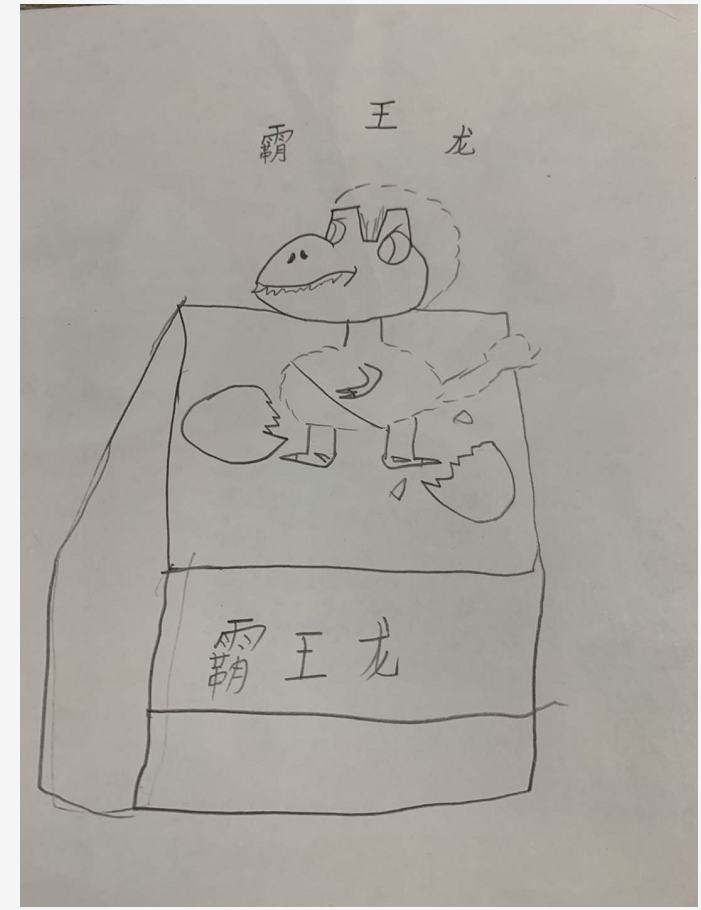 霸王龙
霸王龙